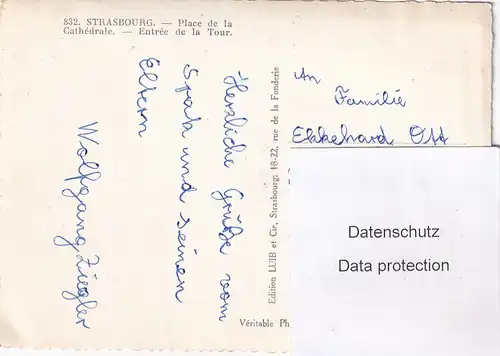 832. STRASBOURG. — Place de la
Cathédrale. — Entrée de la Tour.
Herzliche Grüße vom
Spatz und seinen
Eltern
Wolfgang Ziegler
Edition LUIB et Cie, Strasbourg; 18-22, rue de la Fonderie
Véritable Ph
An
Familie
Ekkehard Ott
Datenschutz
Data protection